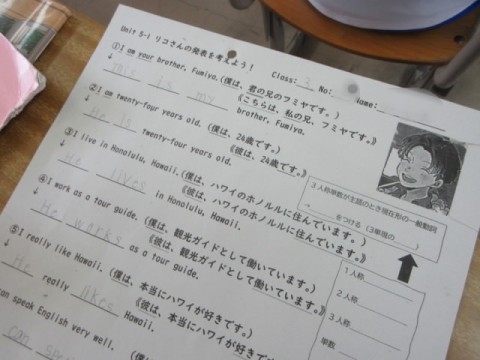 Unit 5-1 リコさんの発表を考えよう！
Class: 3 No: Name:
①I am your brother, Fumiya.(僕は、君の兄のフミヤです。)
↓ This is my brother, Fumiya. 《こちらは、私の兄、フミヤです。》
②I am twenty-four years old. (僕は、24歳です。)
↓ He is twenty-four years old. 《彼は、24歳です。》
③I live in Honolulu, Hawaii. (僕は、ハワイのホノルルに住んでいます。)
↓ He lives in Honolulu, Hawaii. 《彼は、ハワイのホノルルに住んでいます。》
④I work as a tour guide. (僕は、観光ガイドとして働いています。)
↓ He works as a tour guide. 《彼は、観光ガイドとして働いています。》
⑤I really like Hawaii. (僕は、本当にハワイが好きです。)
↓ He really likes Hawaii. 《彼は、本当にハワイが好きです。》
can speak English very well. (僕は、
can
３人称単数が主語のとき現在形の一般動詞
→ をつける (3年現の )
１人称
２人称
３人称
単数